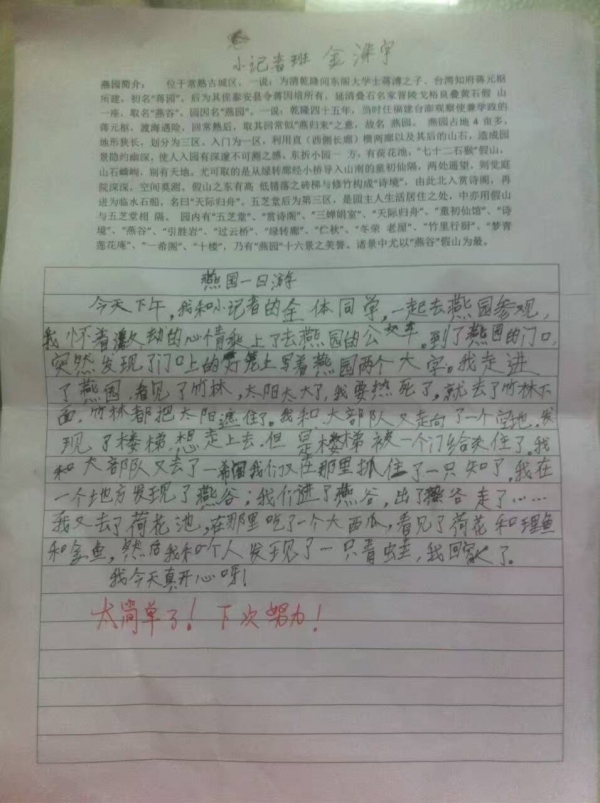 小记者班 金泽宇
燕园简介： 位于常熟古城区，一说：为清乾隆间东阁大学士蒋溥之子、台湾知府蒋元枢
所建，初名“蒋园”。后为其侄泰安县令蒋因培所有，延清叠石名家晋陵戈裕良叠黄石假 山
一座，取名“燕谷”，园因名“燕园”。一说：乾隆四十五年，当时任福建台澎观察使兼学政的
蒋元枢，渡海遇险，回常熟后，取其回常似“燕归来”之意，故名 燕园。 燕园占地 4 亩多，
地形狭长，划分为三区，入门为一区，利用直（西侧长廊）横两廊以及其后的山石，造成园
景隐约幽深，使人入园有深邃不可测之感，东折小园一 方，有荷花池，“七十二石猴”假山，
山石嶙峋，别有天地。尤可取的是从绿转廊经小桥导入山南的童初仙隔，两处遥望，则觉庭
院深深，空间莫测，假山之东有高 低错落之砖梯与修竹构成“诗境”，由此北入赏诗阁，再
进为临水石船，名曰“天际归舟”。五芝堂后为第三区，是园主人生活居住之处，中亦用假山
与五芝堂相 隔。 园内有“五芝堂”、“赏诗阁”、“三婵娟室”、“天际归舟”、“童初仙馆”、“诗
境”、“燕谷”、“引胜岩”、“过云桥”、“绿转廊”、“伫秋”、“冬荣 老屋”、“竹里行厨”、“梦青
莲花庵”、“一希阁”、“十楼”，乃有“燕园”十六景之美誉。诸景中尤以“燕谷”假山为最。
燕园一日游
今天下午，我和小记者的全体同学，一起去燕园参观，
我怀着激动的心情乘上了去燕园的公交车。到了燕园的门口，
突然发现了门口上的上写着燕园两个大字。我走进
了燕园，看见了竹林，太阳太大了，我要热死了，就去了竹林下
面，竹林都把太阳遮住了。我和大部队又走向了一个空地，发
现了楼梯想走上去，但是楼梯被一个门给关住了。我
和大部队又去了一希阁我们又在那里抓住了一只知了。我在
一个地方发现了燕谷；我们进了燕谷，出了燕谷走了……
我又去了荷花池，在那里吃了一个大西瓜，看见了荷花和鲤鱼
和金鱼，然后我和个人发现了一只青蛙，我回家了。
我今天真开心呀！
太简单了！下次努力！